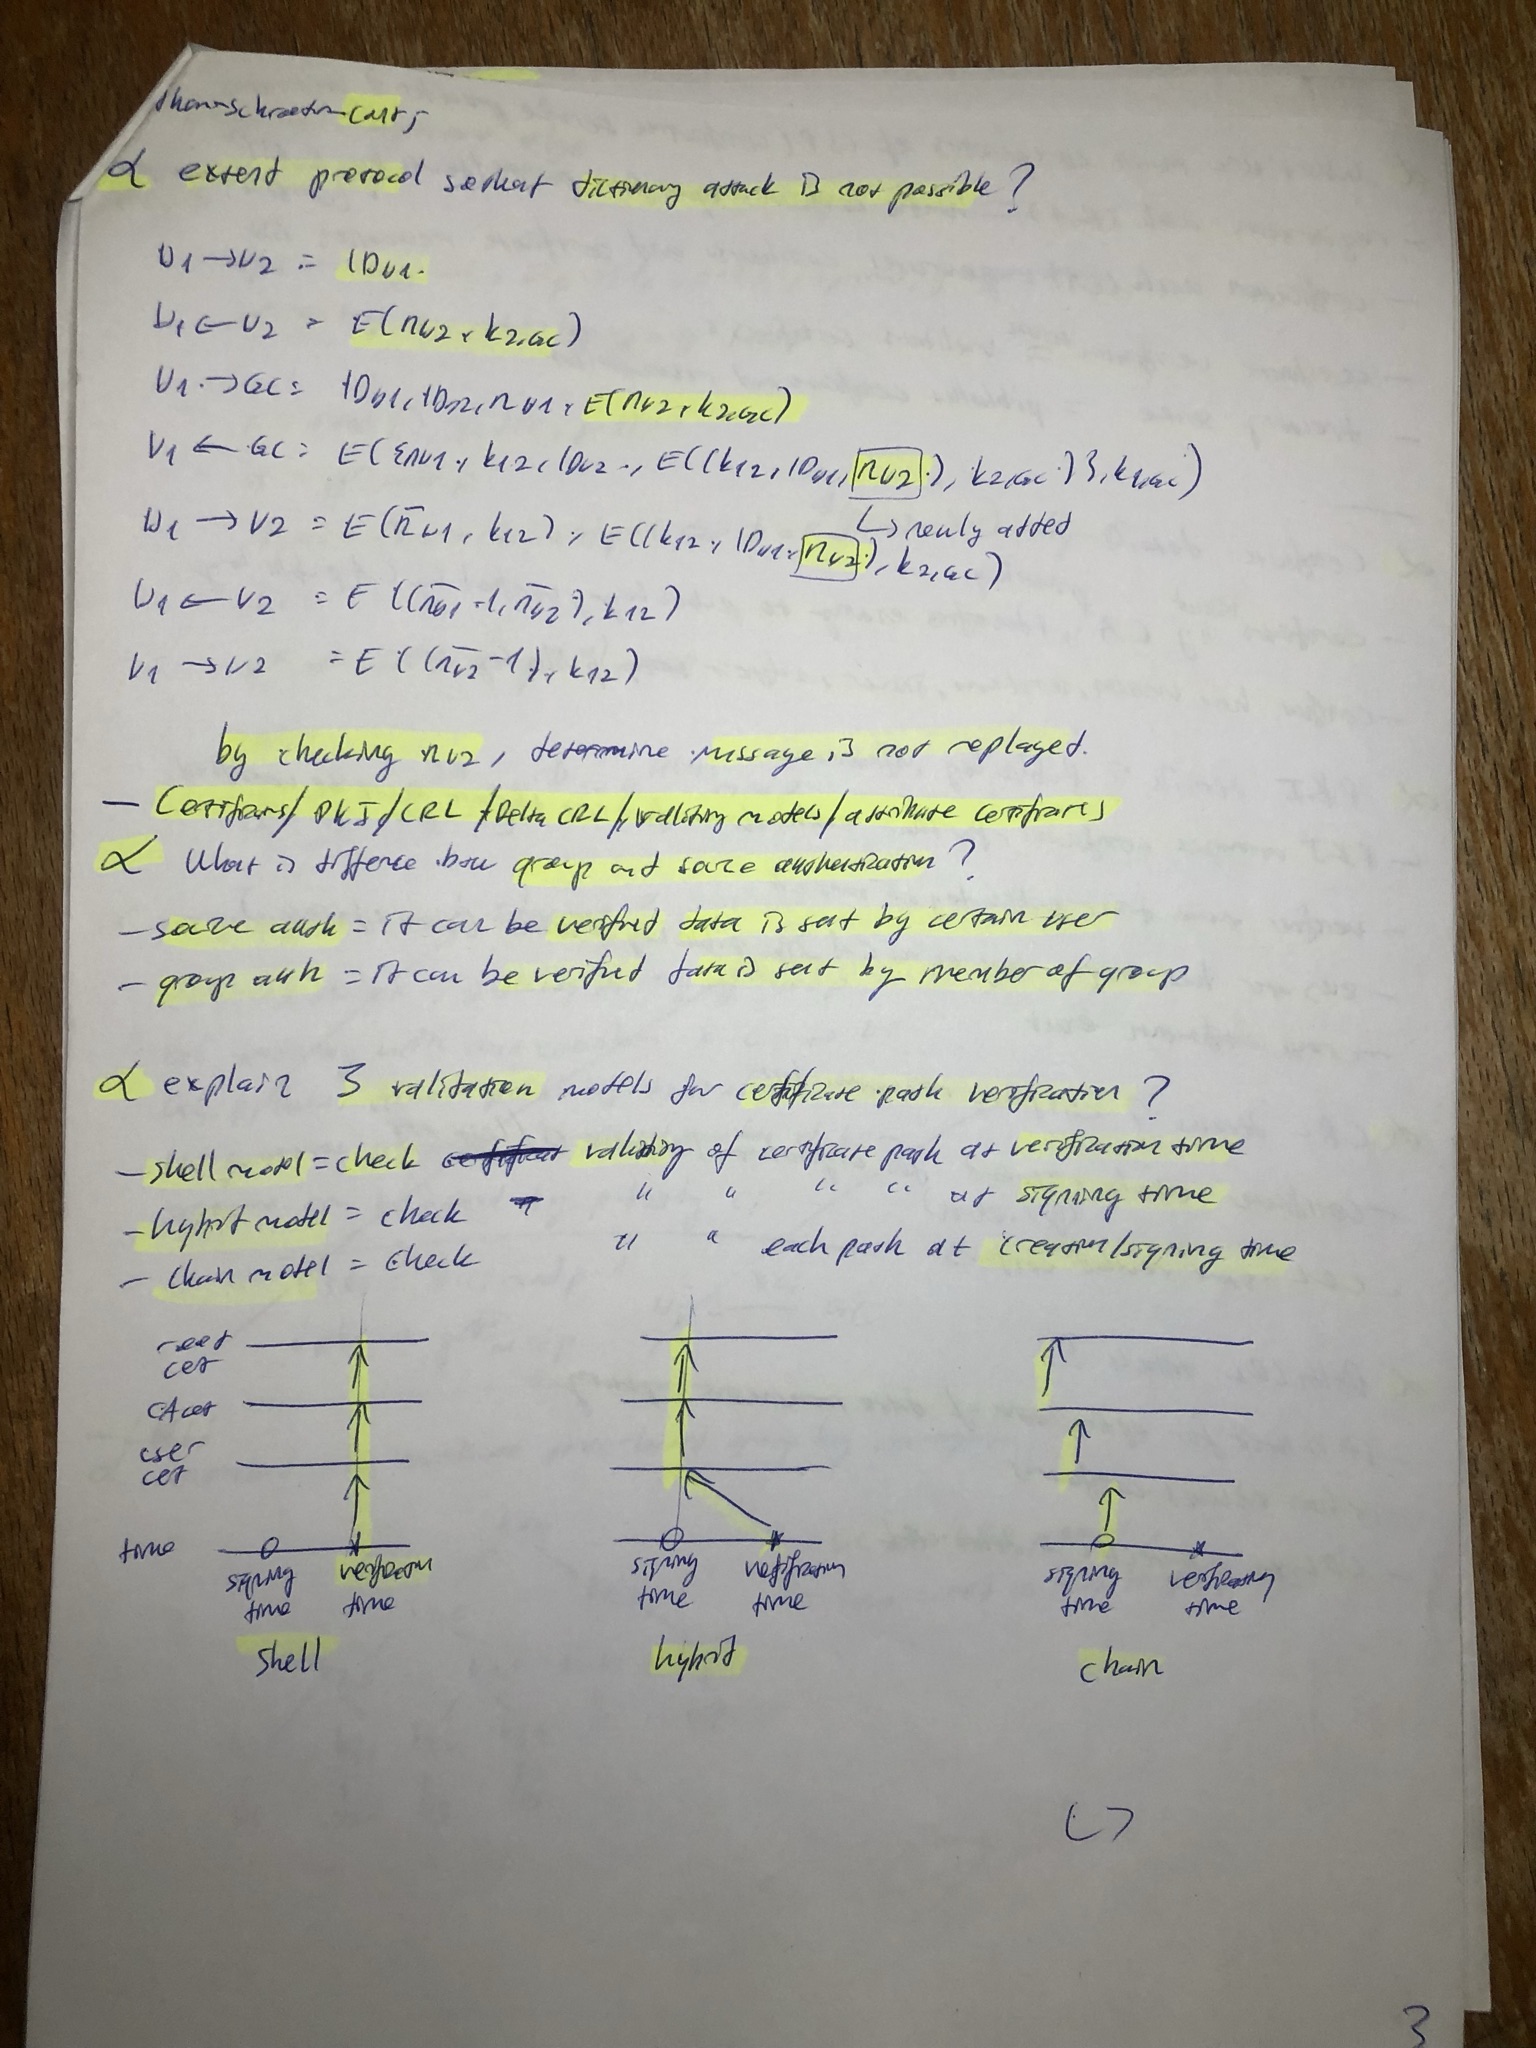 α extend protocol so that dictionary attack is not possible?
U1 → U2 = IDU1.
U1 ← U2 = E(nU2, k2,GC)
U1 → GC = IDU1, IDU2, nU1, E(nU2, k2,GC)
U1 ← GC = E({nU1, k12, IDU2, E((k12, IDU1, nU2), k2,GC)}, k1,GC)
↳ newly added
U1 → U2 = E(n̄U1, k12), E((k12, IDU1, nU2), k2,GC)
U1 ← U2 = E((n̄U1-1, n̄U2), k12)
U1 → U2 = E((n̄U2-1), k12)
by checking nU2, determine message is not replayed.
- Certificates/PKI/CRL/Delta CRL/validity models/attribute certificates
α What is difference btw group and source authentication?
- source auth = it can be verified data is sent by certain user
- group auth = it can be verified data is sent by member of group
α explain 3 validation models for certificate path verification?
- shell model = check validity of certificate path at verification time
- hybrid model = check " " " " at signing time
- chain model = check " " each path at creation/signing time
root cert
CA cert
user cert
time
signing time verification time
signing time verification time
signing time verification time
shell hybrid chain
3